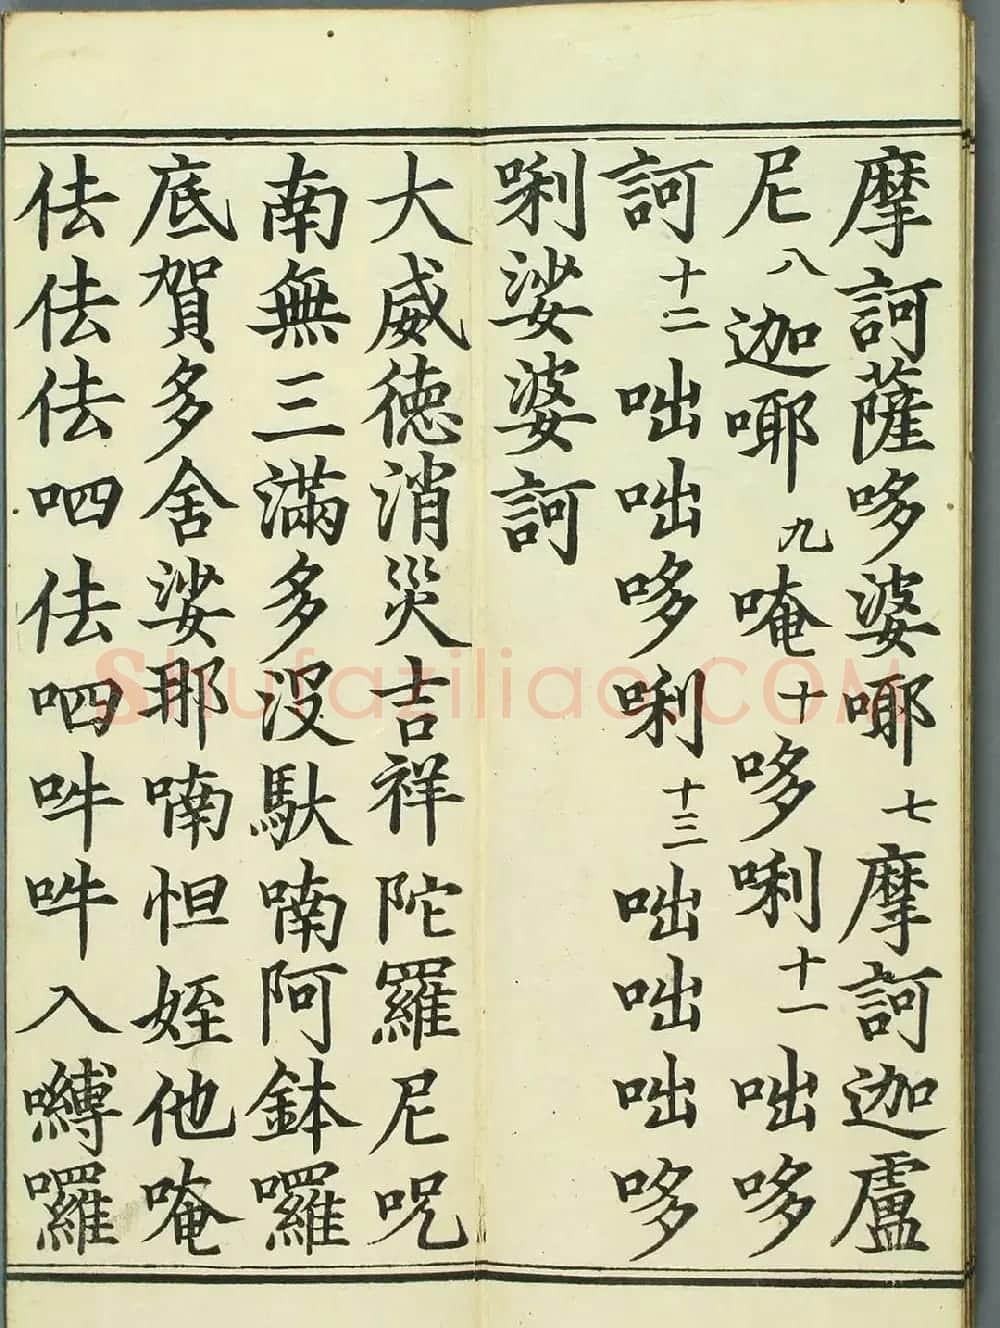 摩訶薩哆婆耶七摩訶迦盧
尼八迦耶九唵十哆唎十一咄哆
訶十二咄咄哆唎十三咄咄咄哆
唎娑婆訶
大威徳消災吉祥陀羅尼呪
南無三滿多沒馱喃阿鉢囉
底賀多舍娑耶喃怛姪他唵
佉佉佉呬佉呬吽吽入嚩囉
Shufaziliao.COM